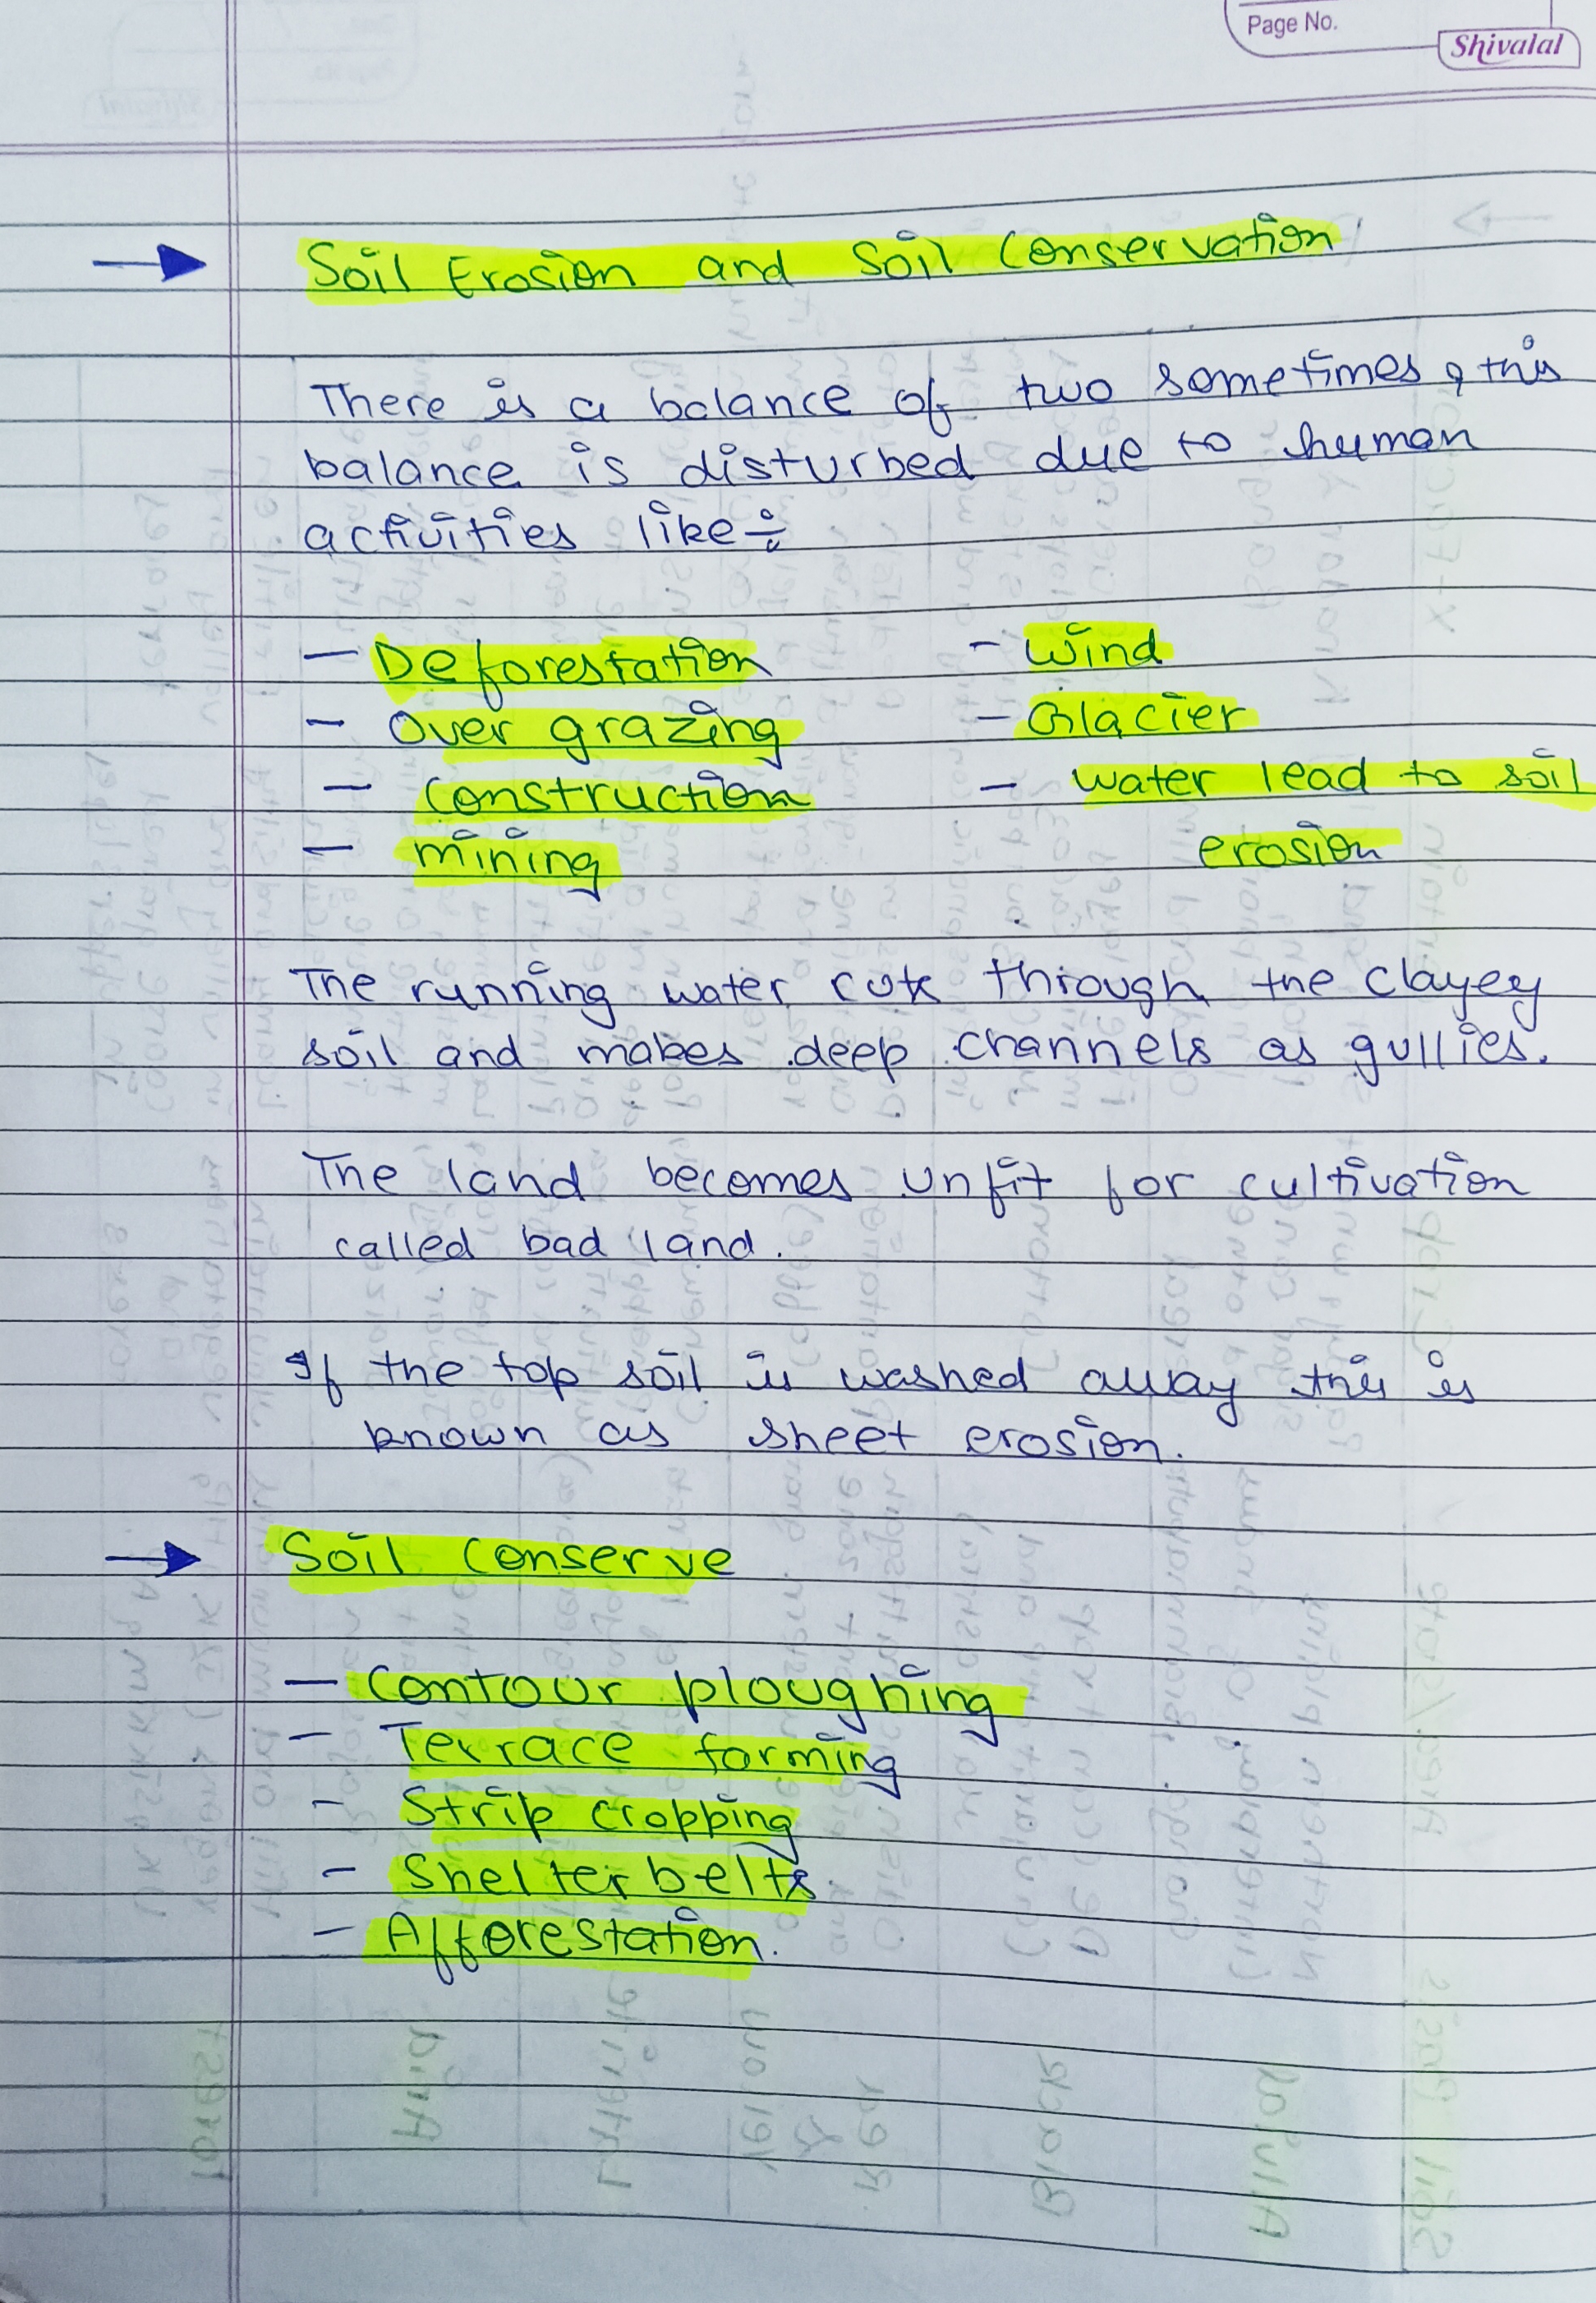 Page No.
Shivalal
Soil Erosion and Soil Conservation
There is a balance of two sometimes, this
balance is disturbed due to human
activities like÷
— Deforestation – Wind
– Over grazing – Glacier
– Construction – water lead to soil
– mining erosion
The running water cuts through the clayey
soil and makes deep channels as gullies.
The land becomes unfit for cultivation
called bad land.
If the top soil is washed away this is
known as sheet erosion.
Soil Conserve
– Contour ploughing
– Terrace farming
– Strip cropping
– Shelter belts.
– Afforestation.